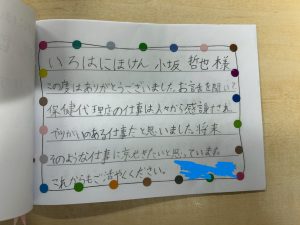 いろはにほけん 小坂 哲也 様
この度はありがとうございました。お話を聞いて
保健代理店の仕事は人々から感謝され
やりがいのある仕事だと思いました。将来
そのような仕事に就きたいと思っています。
これからもご活やくください。